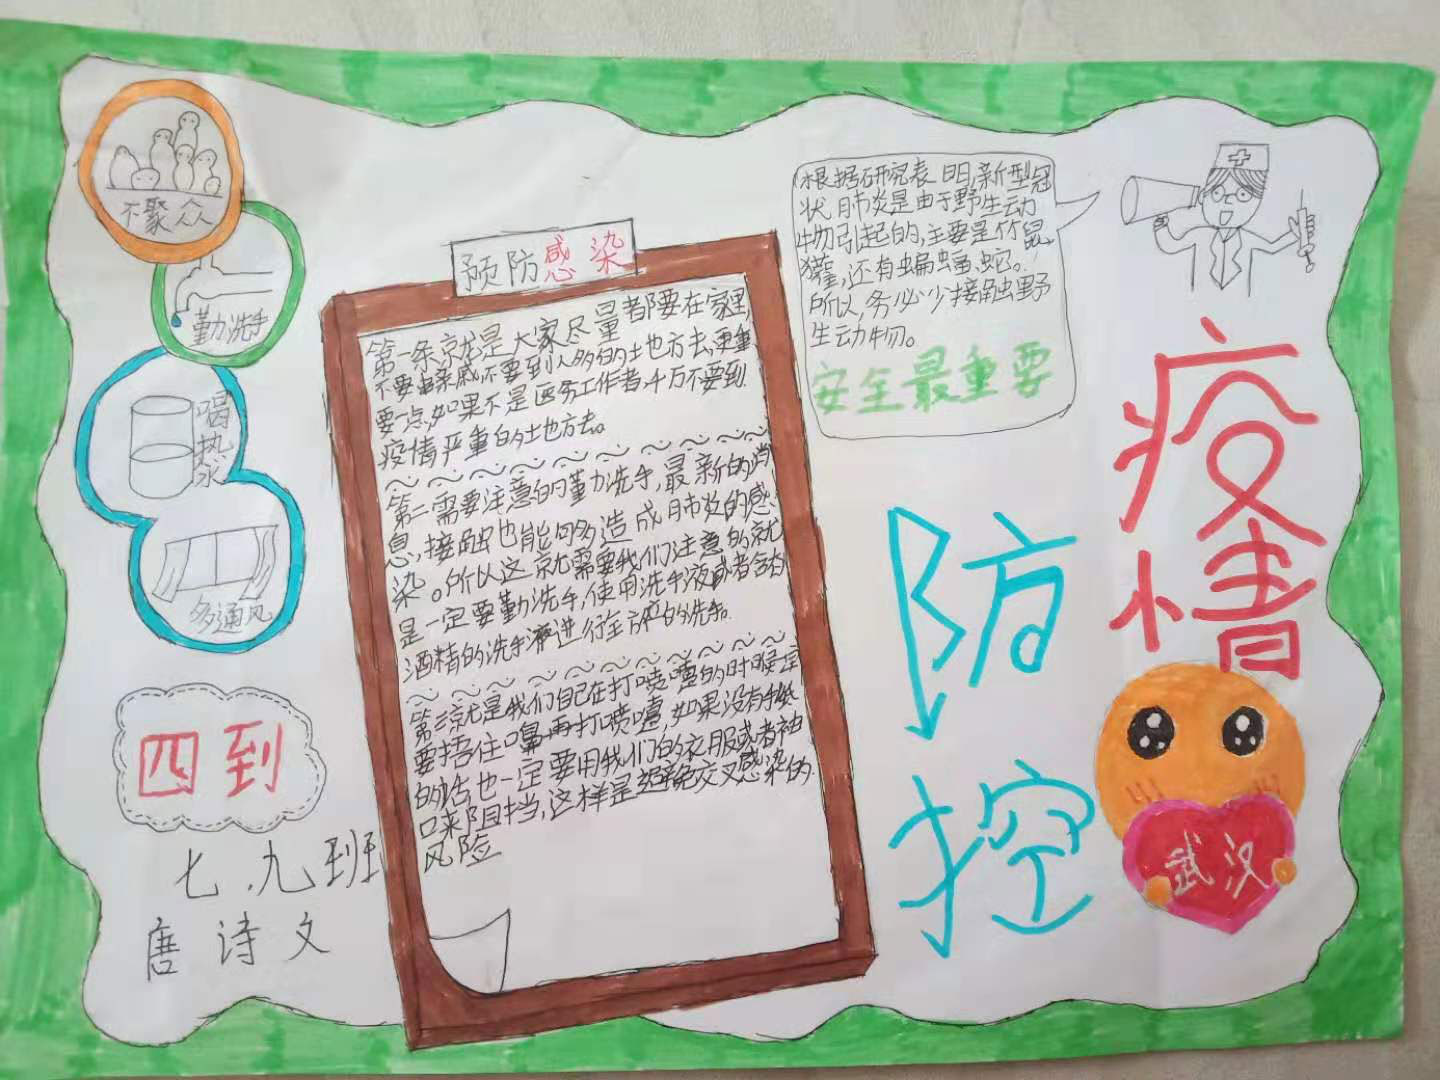 不聚众
勤洗手
喝热水
多通风
四到
七.九班
唐诗文
预防感染
第一条就是大家尽量都要在家里,
不要串亲戚,不要到人多的地方去,更重
要一点,如果不是医务工作者千万不要到
疫情严重的地方去。
第二需要注意的勤洗手,最新的消
息,接触也能够造成肺炎的感
染。所以这就需要我们注意的就
是一定要勤洗手,使用洗手液或者含有
酒精的洗手液进行全方位的洗手。
第三就是我们自己在打喷嚏的时候一定
要捂住口鼻再打喷嚏,如果没有手纸
的话,也一定要用我们的衣服或者袖
口来阻挡,这样是避免交叉感染的
风险
根据研究表明,新型冠
状肺炎是由于野生动
物引起的,主要是竹鼠,
獾,还有蝙蝠、蛇。
所以,务必少接触野
生动物。
安全最重要
疫情
防控
武汉